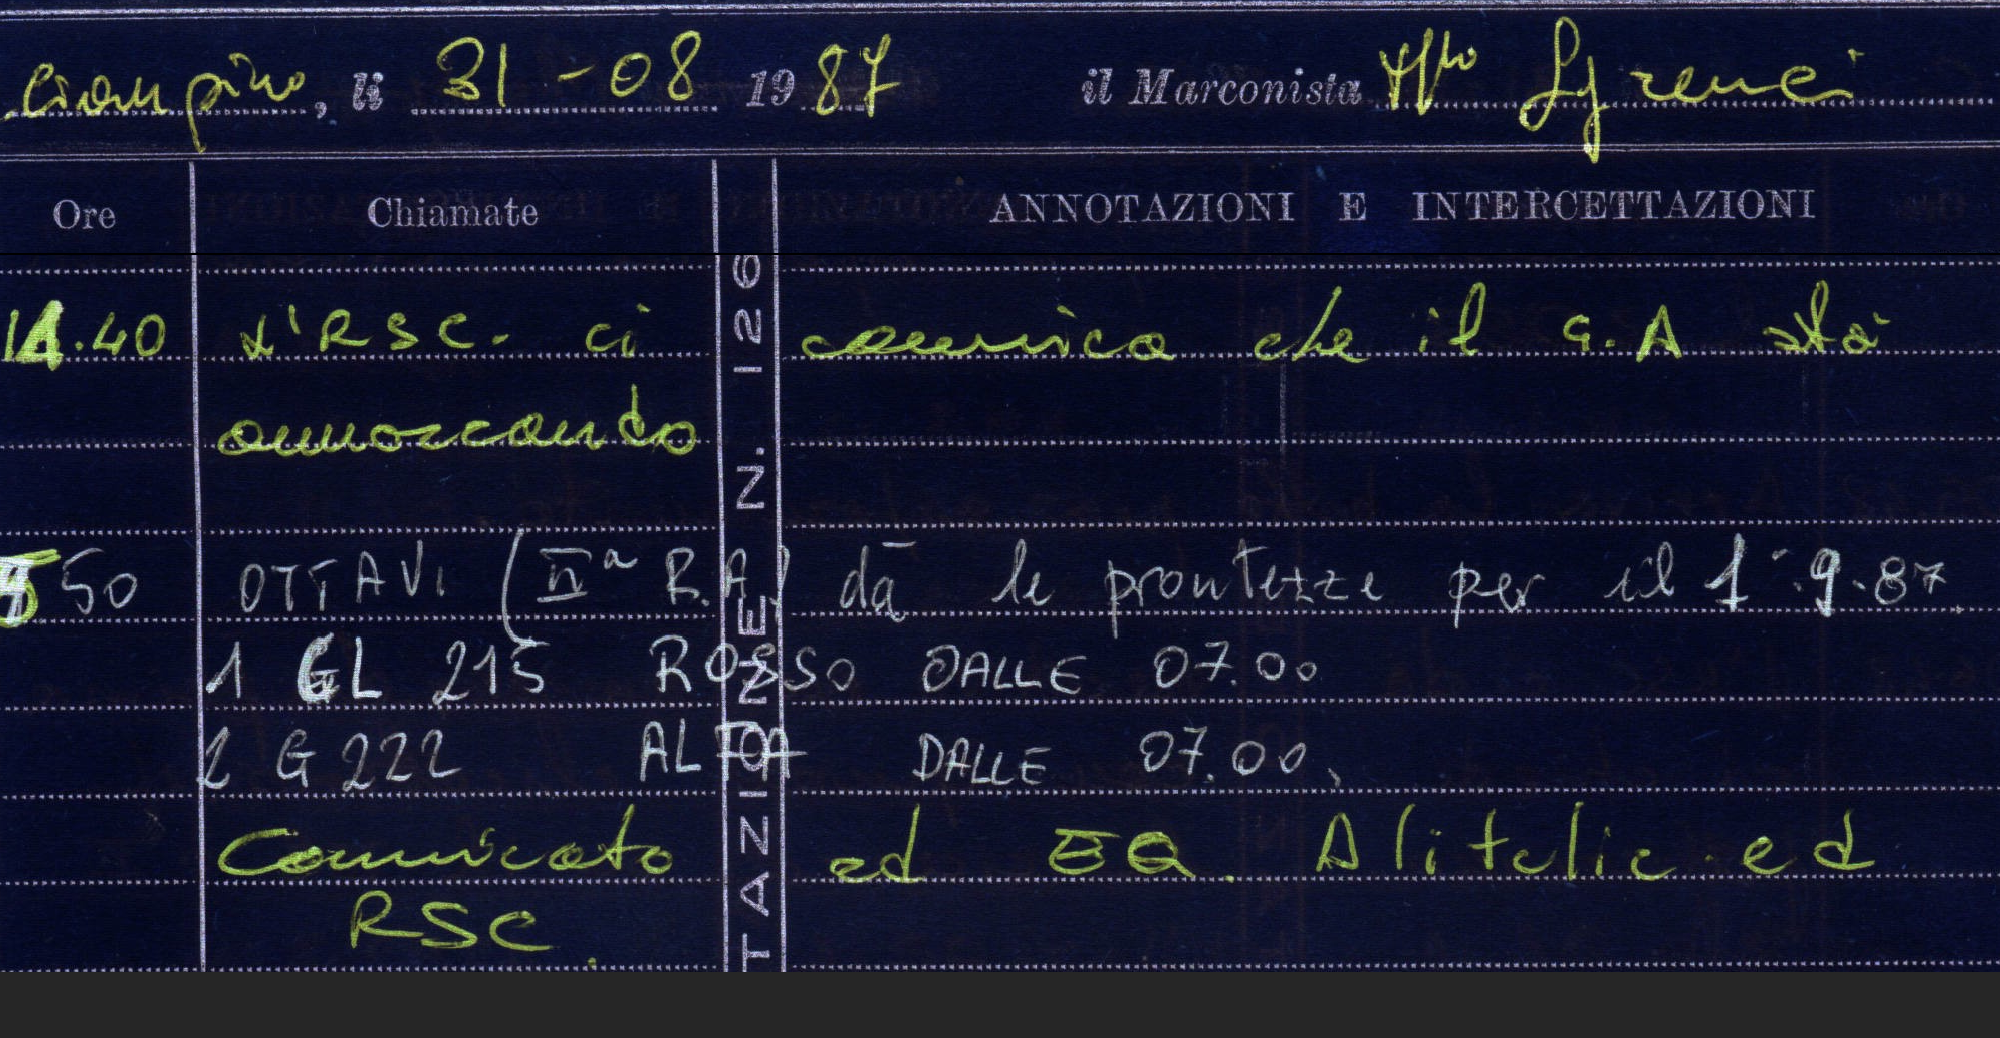 Ciampino, li 31-08 1987 il Marconista
Ore Chiamate ANNOTAZIONI E INTERCETTAZIONI
14.40 L'RSC. ci comunica che il G.A stà
ammarando
50 OTTAVI (IIª R.A) dà le prontezze per il 1°.9.87.
1 GL 215 ROSSO DALLE 07.00
2 G222 ALFA DALLE 07.00.
Comunicato ad Alitalia ed
RSC.
TAZIONE N. 126